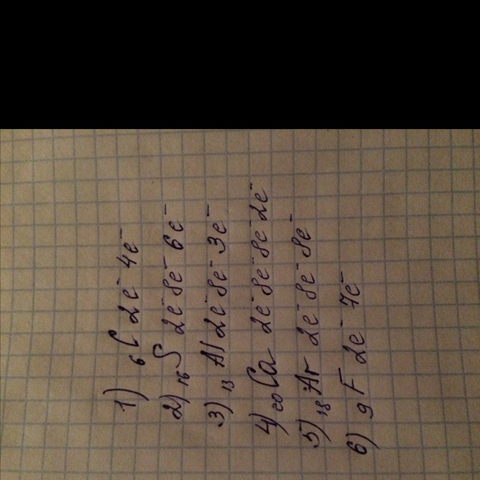 1) ₆C 2e⁻ 4e⁻
2) ₁₆S 2e⁻ 8e⁻ 6e⁻
3) ₁₃Al 2e⁻ 8e⁻ 3e⁻
4) ₂₀Ca 2e⁻ 8e⁻ 8e⁻ 2e⁻
5) ₁₈Ar 2e⁻ 8e⁻ 8e⁻
6) ₉F 2e⁻ 7e⁻